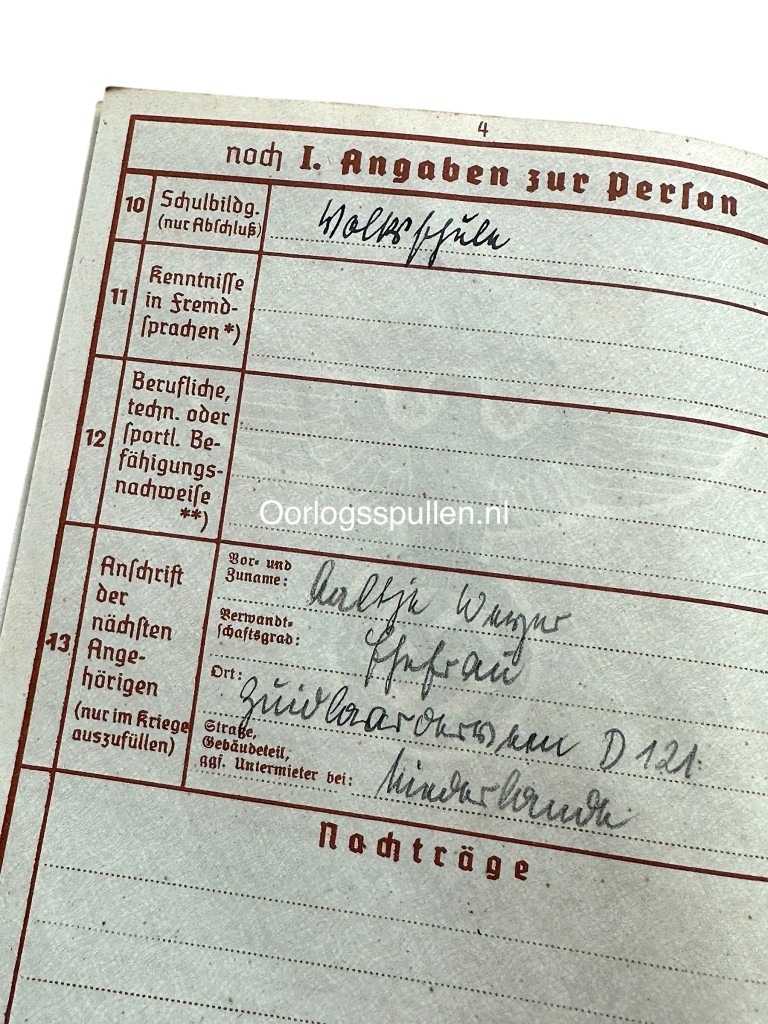 4
noch I. Angaben zur Person
10 Schulbildg. (nur Abschluß)
Volksschule
11 Kenntnisse in Fremd-
sprachen *)
12 Berufliche,
techn. oder
sportl. Be-
fähigungs-
nachweise
**)
Oorlogsspullen.nl
13 Anschrift
der
nächsten
Ange-
hörigen
(nur im Kriege
auszufüllen)
Vor- und
Zuname: Aaltje Weyer
Verwandt-
schaftsgrad: Ehefrau
Ort: Zuidlaarderveen D 121
Straße,
Gebäudeteil,
ggf. Untermieter bei: Niederlande
Nachträge